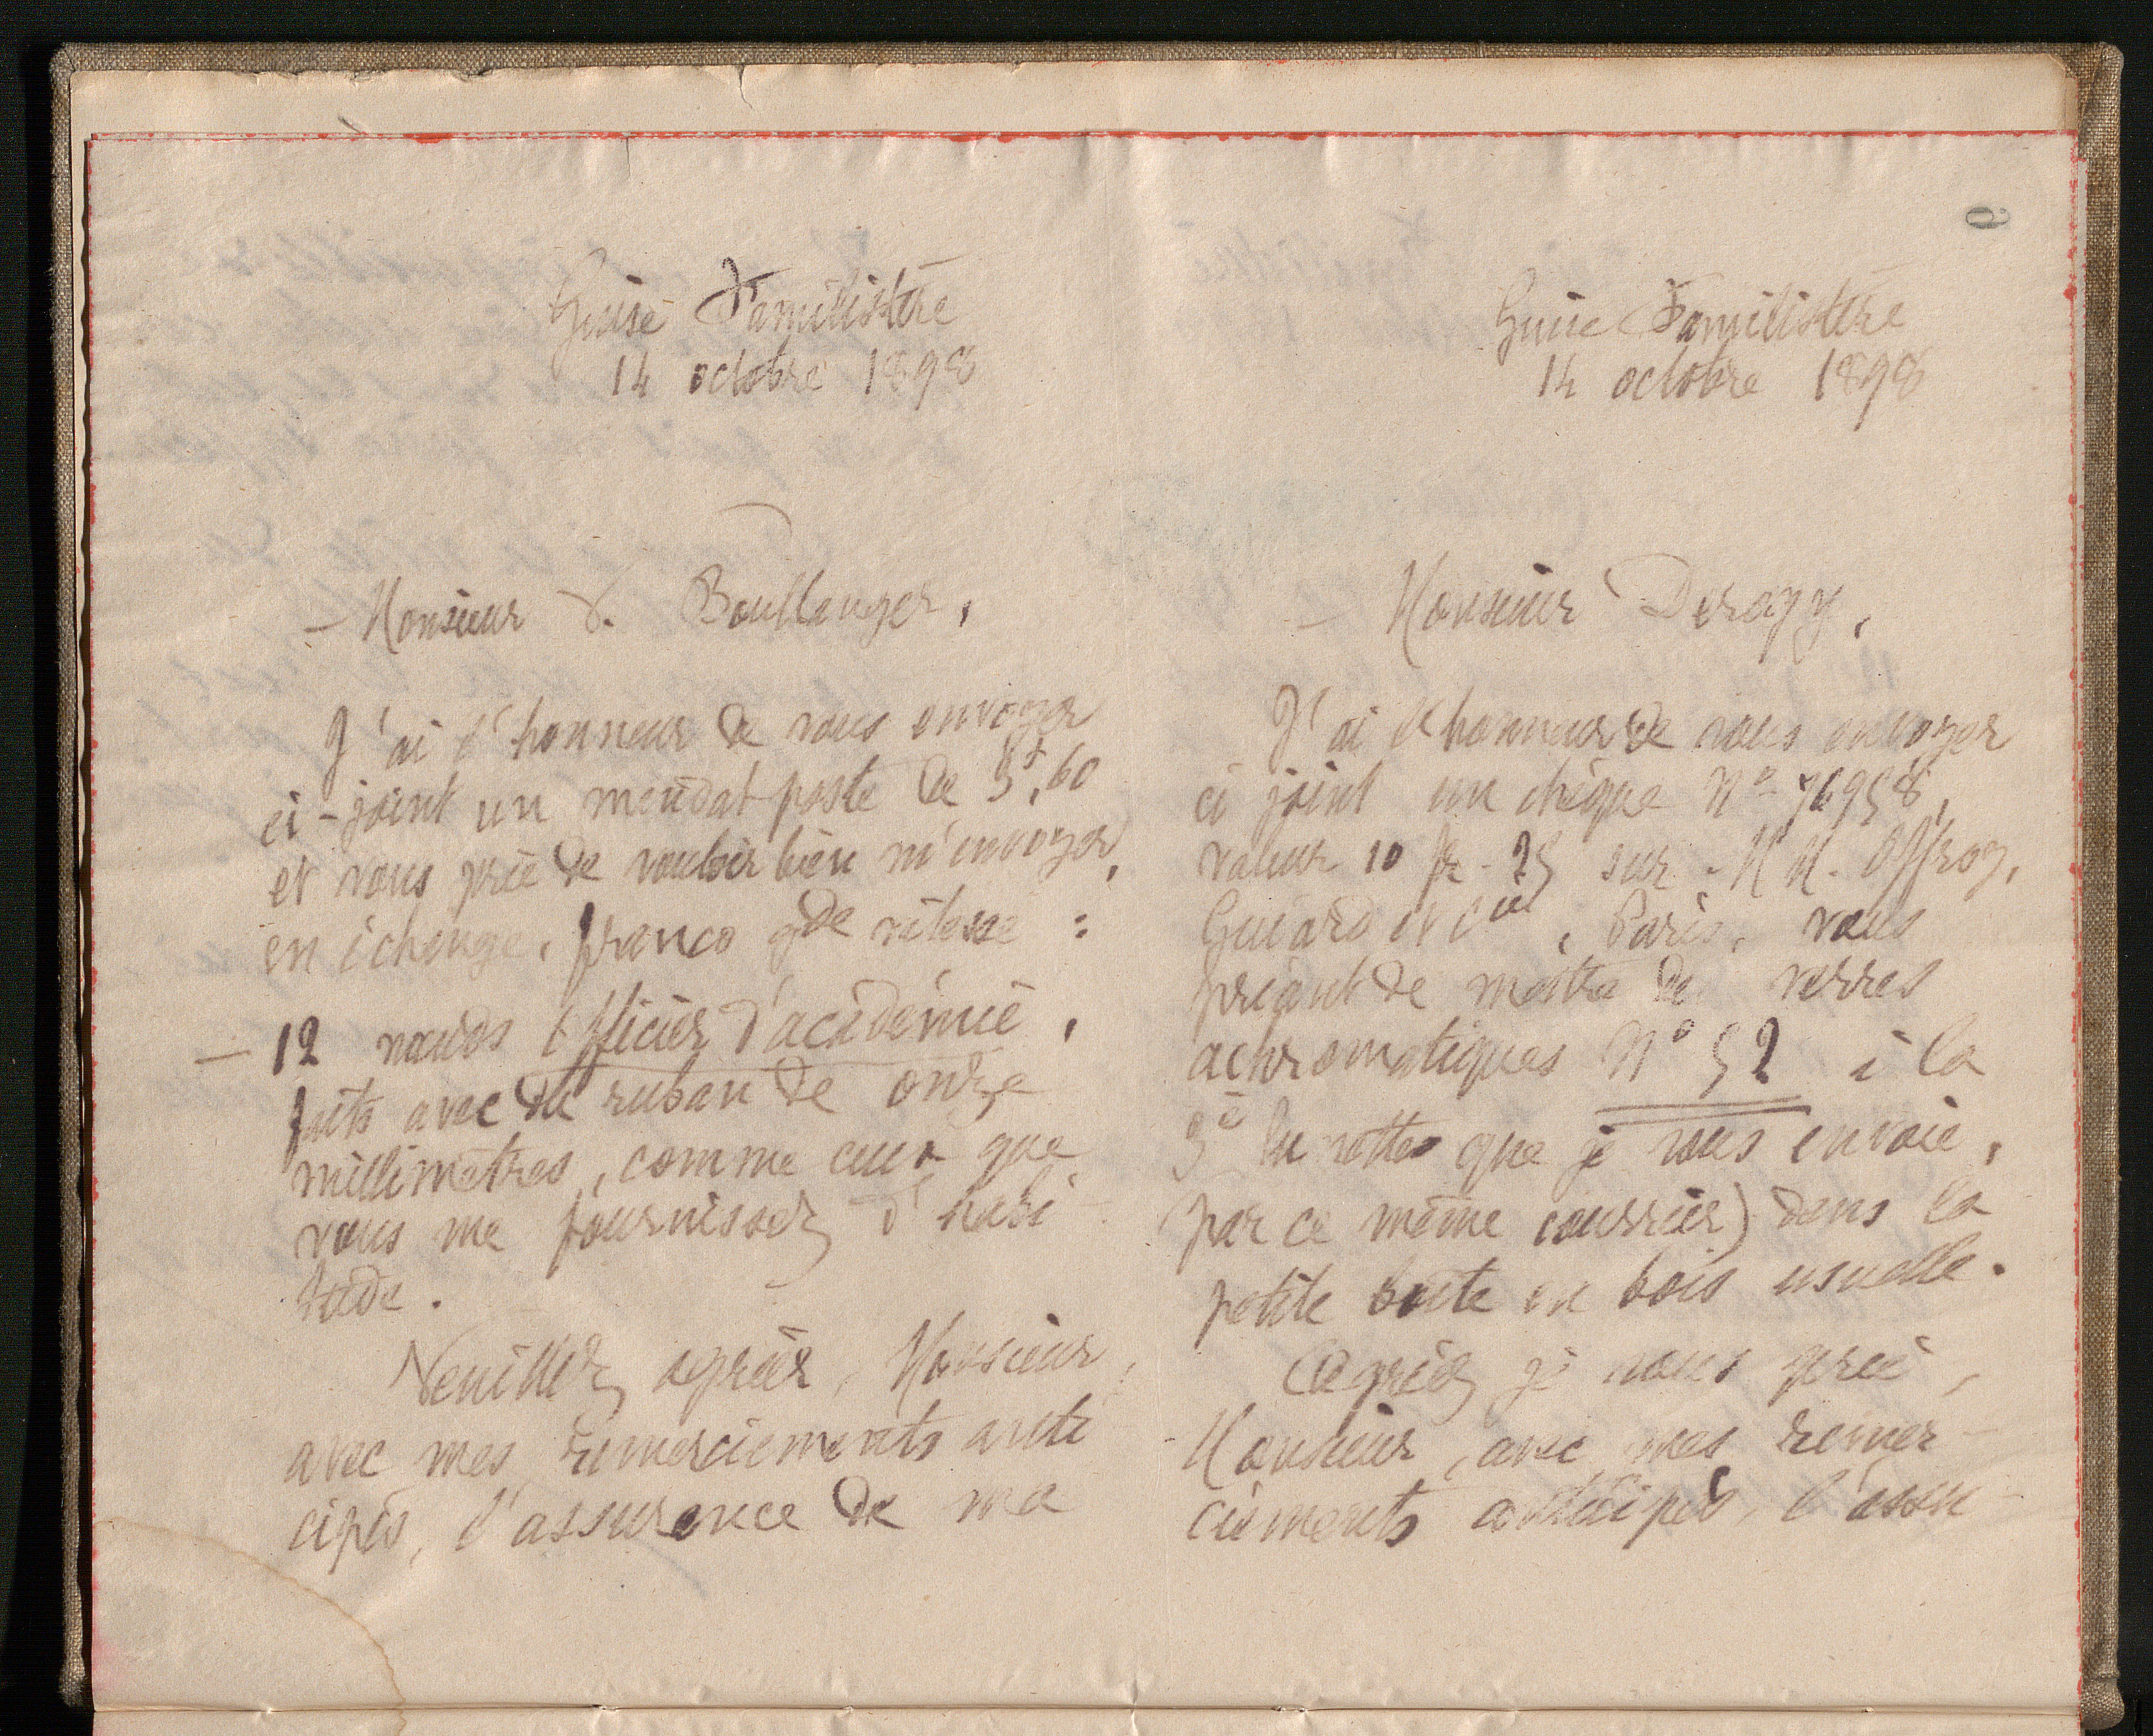 Guise Familistère
14 octobre 1898
Monsieur Boullanger,
J'ai l'honneur de vous envoyer
ci-joint un mandat-poste de 5f,60
et vous prie de vouloir bien m'envoyer,
en échange, franco gde vitesse :
— 12 nœuds officier d'académie,
faits avec du ruban de onze
millimètres, comme ceux que
vous me fournissez d'habi-
tude.
Veuillez agréer, Monsieur,
avec mes remerciements anti
cipés, l'assurance de ma
6
Guise Familistère
14 octobre 1898
Monsieur Deragy,
J'ai l'honneur de vous envoyer
ci joint un chèque No 76958,
valeur 10 fr. 25 sur MM. Offroy,
Guiard et Cie, Paris, vous
priant de mettre des verres
achromatiques No 52 à la
lunettes que je vous envoie,
(par ce même courrier) dans la
petite boîte en bois usuelle.
Agréez je vous prie,
Monsieur, avec mes remer-
ciements anticipés, l'assu-